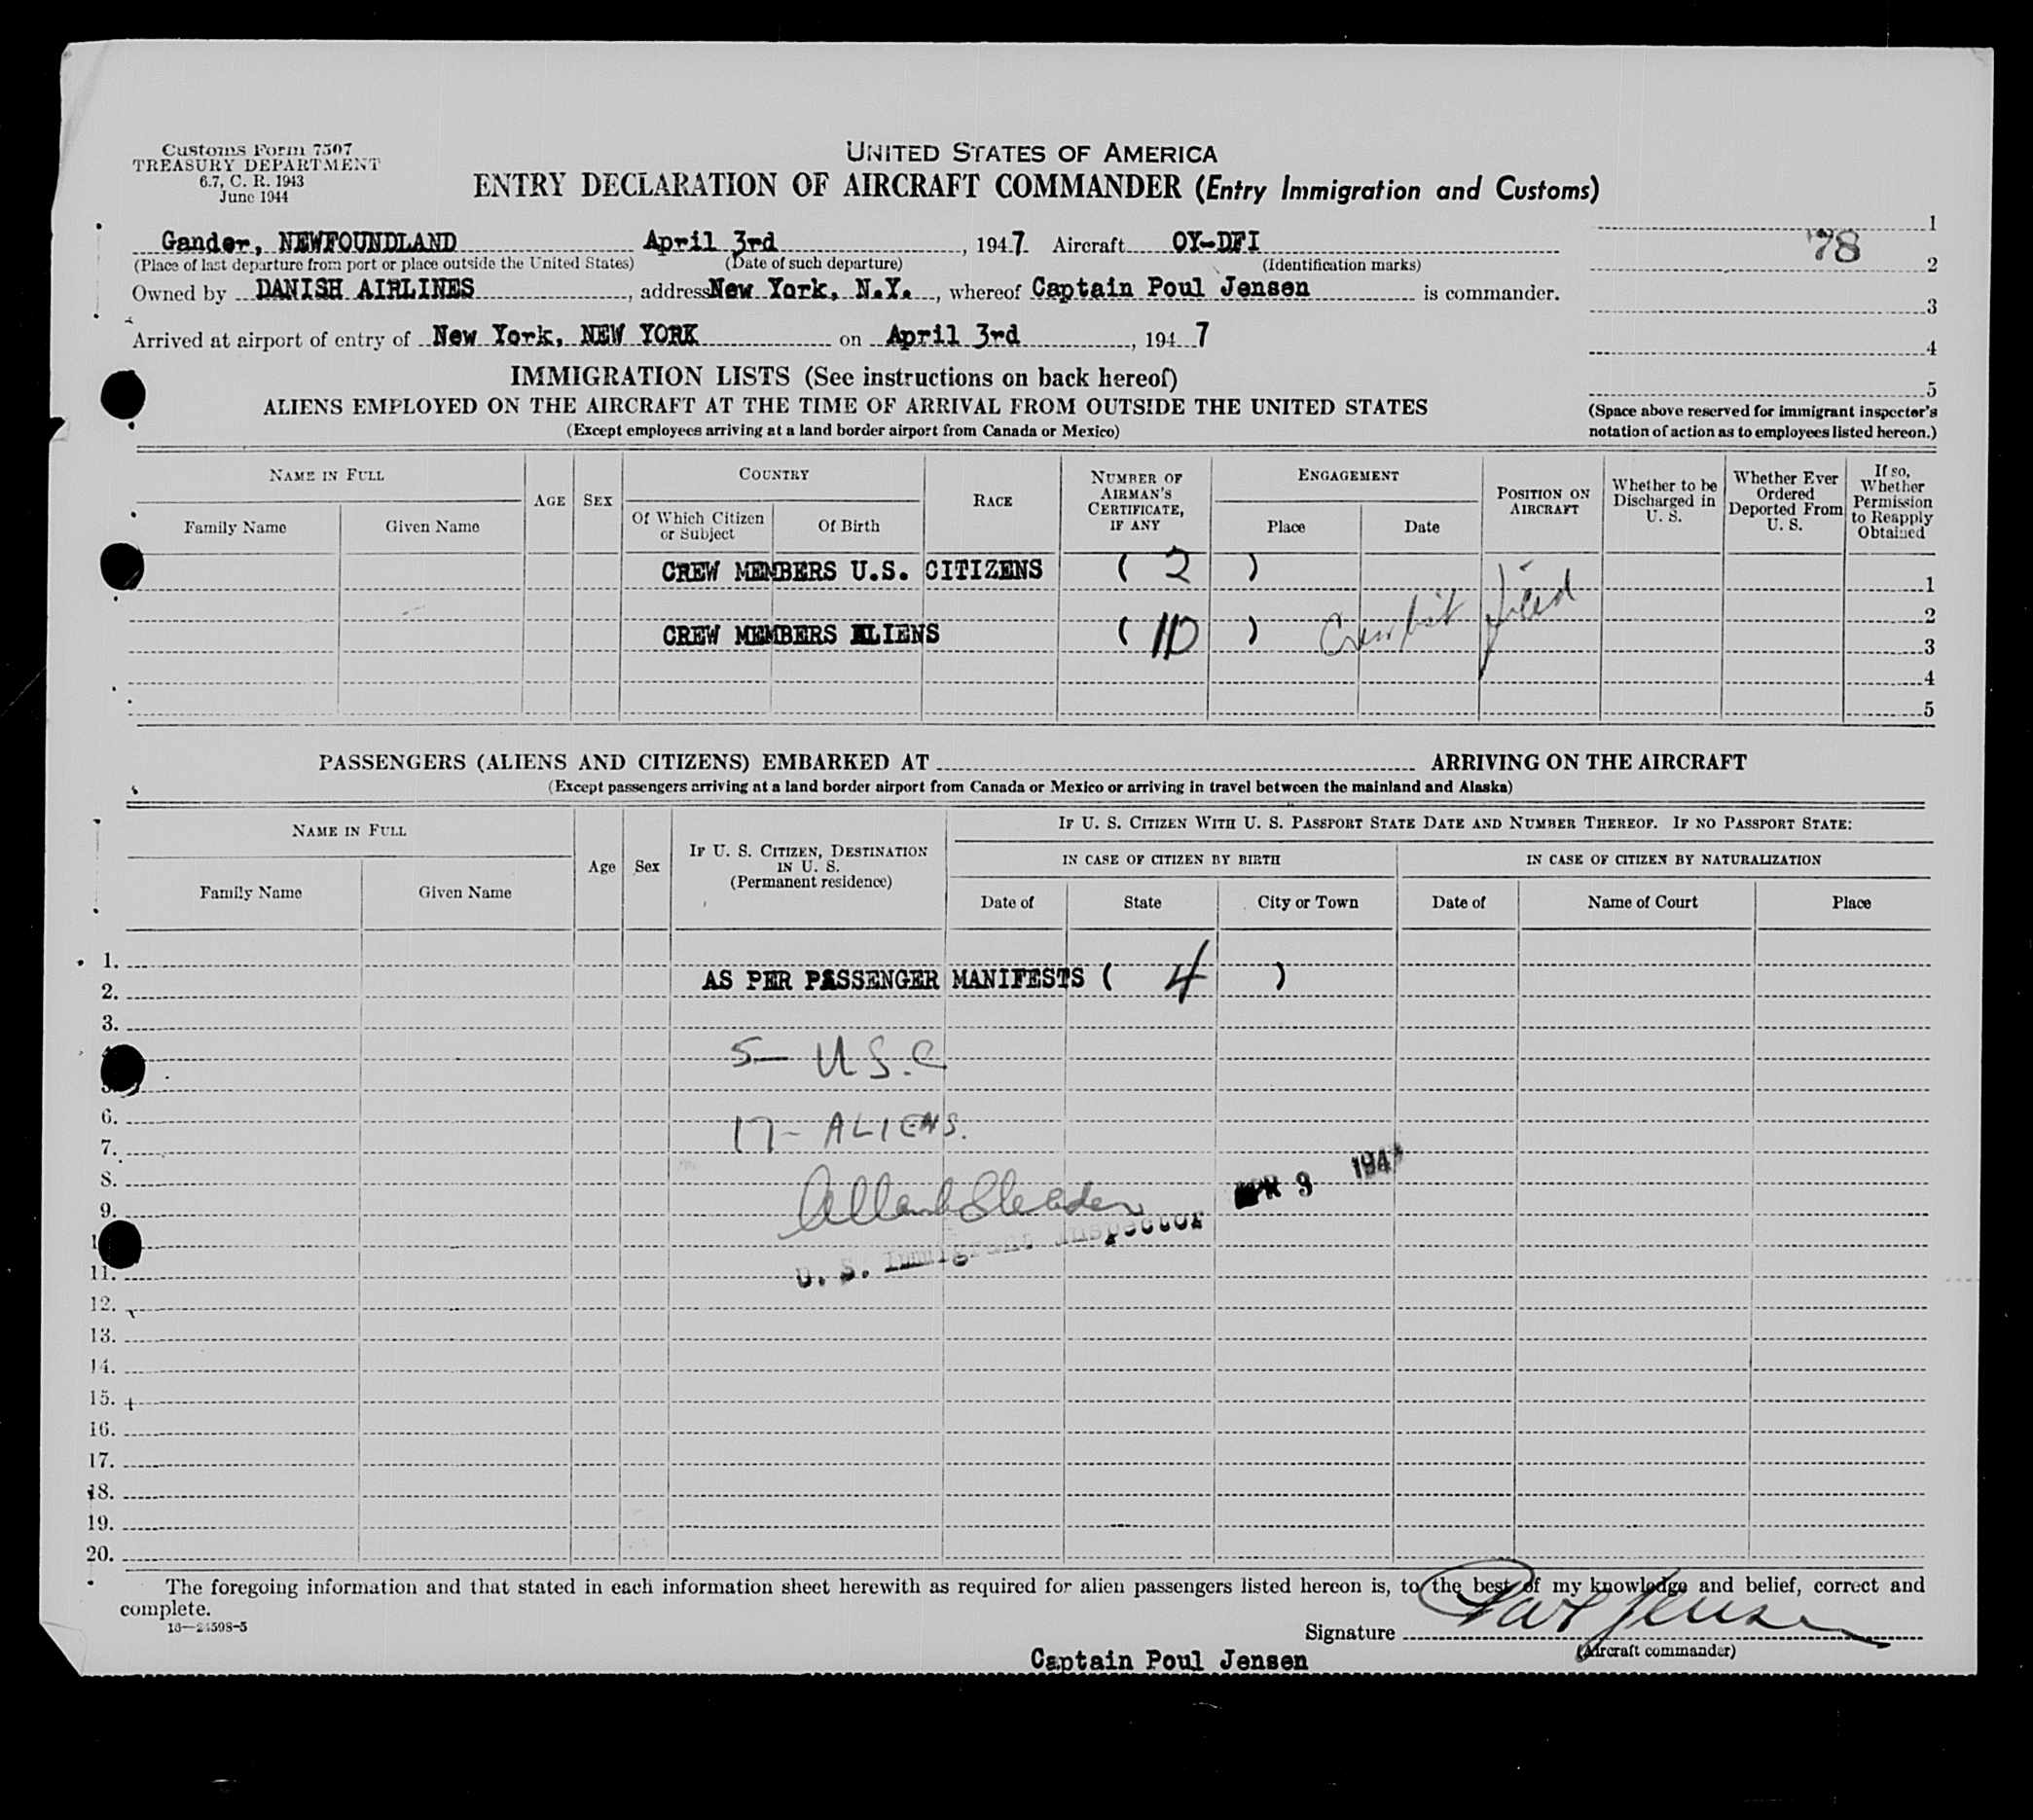 Customs Form 7507
TREASURY DEPARTMENT
6.7, C. R. 1943
June 1944
UNITED STATES OF AMERICA
ENTRY DECLARATION OF AIRCRAFT COMMANDER (Entry Immigration and Customs)
Gander, NEWFOUNDLAND April 3rd, 1947 Aircraft OY-DFI
(Place of last departure from port or place outside the United States) (Date of such departure) (Identification marks)
Owned by DANISH AIRLINES, address New York, N.Y., whereof Captain Poul Jensen is commander.
Arrived at airport of entry of New York, NEW YORK on April 3rd, 1947
1
78
2
3
4
5
(Space above reserved for immigrant inspector's
notation of action as to employees listed hereon.)
IMMIGRATION LISTS (See instructions on back hereof)
ALIENS EMPLOYED ON THE AIRCRAFT AT THE TIME OF ARRIVAL FROM OUTSIDE THE UNITED STATES
(Except employees arriving at a land border airport from Canada or Mexico)
NAME IN FULL
Family Name Given Name
AGE
SEX
COUNTRY
Of Which Citizen or Subject
Of Birth
RACE
NUMBER OF AIRMAN'S CERTIFICATE, IF ANY
ENGAGEMENT
Place Date
POSITION ON AIRCRAFT
Whether to be Discharged in U. S.
Whether Ever Ordered Deported From U. S.
If so, Whether Permission to Reapply Obtained
CREW MEMBERS U.S. CITIZENS ( 2 )
1
2
CREW MEMBERS ALIENS ( 10 ) Crew list filed
3
4
5
PASSENGERS (ALIENS AND CITIZENS) EMBARKED AT ARRIVING ON THE AIRCRAFT
(Except passengers arriving at a land border airport from Canada or Mexico or arriving in travel between the mainland and Alaska)
NAME IN FULL
Family Name Given Name
Age
Sex
IF U. S. CITIZEN, DESTINATION IN U. S.
(Permanent residence)
IF U. S. CITIZEN WITH U. S. PASSPORT STATE DATE AND NUMBER THEREOF. IF NO PASSPORT STATE:
IN CASE OF CITIZEN BY BIRTH
IN CASE OF CITIZEN BY NATURALIZATION
Date of State City or Town Date of Name of Court Place
1.
AS PER PASSENGER MANIFESTS ( 4 )
2.
3.
5- U.S.C
6.
17- ALIENS.
7.
8.
APR 3 194
9.
U. S. Immigrant Inspector
11.
12.
13.
14.
15.
16.
17.
18.
19.
20.
The foregoing information and that stated in each information sheet herewith as required for alien passengers listed hereon is, to the best of my knowledge and belief, correct and
complete.
16—24598-5
Signature Poul Jensen
(Aircraft commander)
Captain Poul Jensen